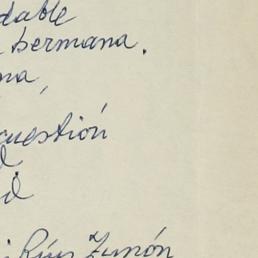 dable
hermana.
ma,
cuestión
d
id
Ríus Zunón